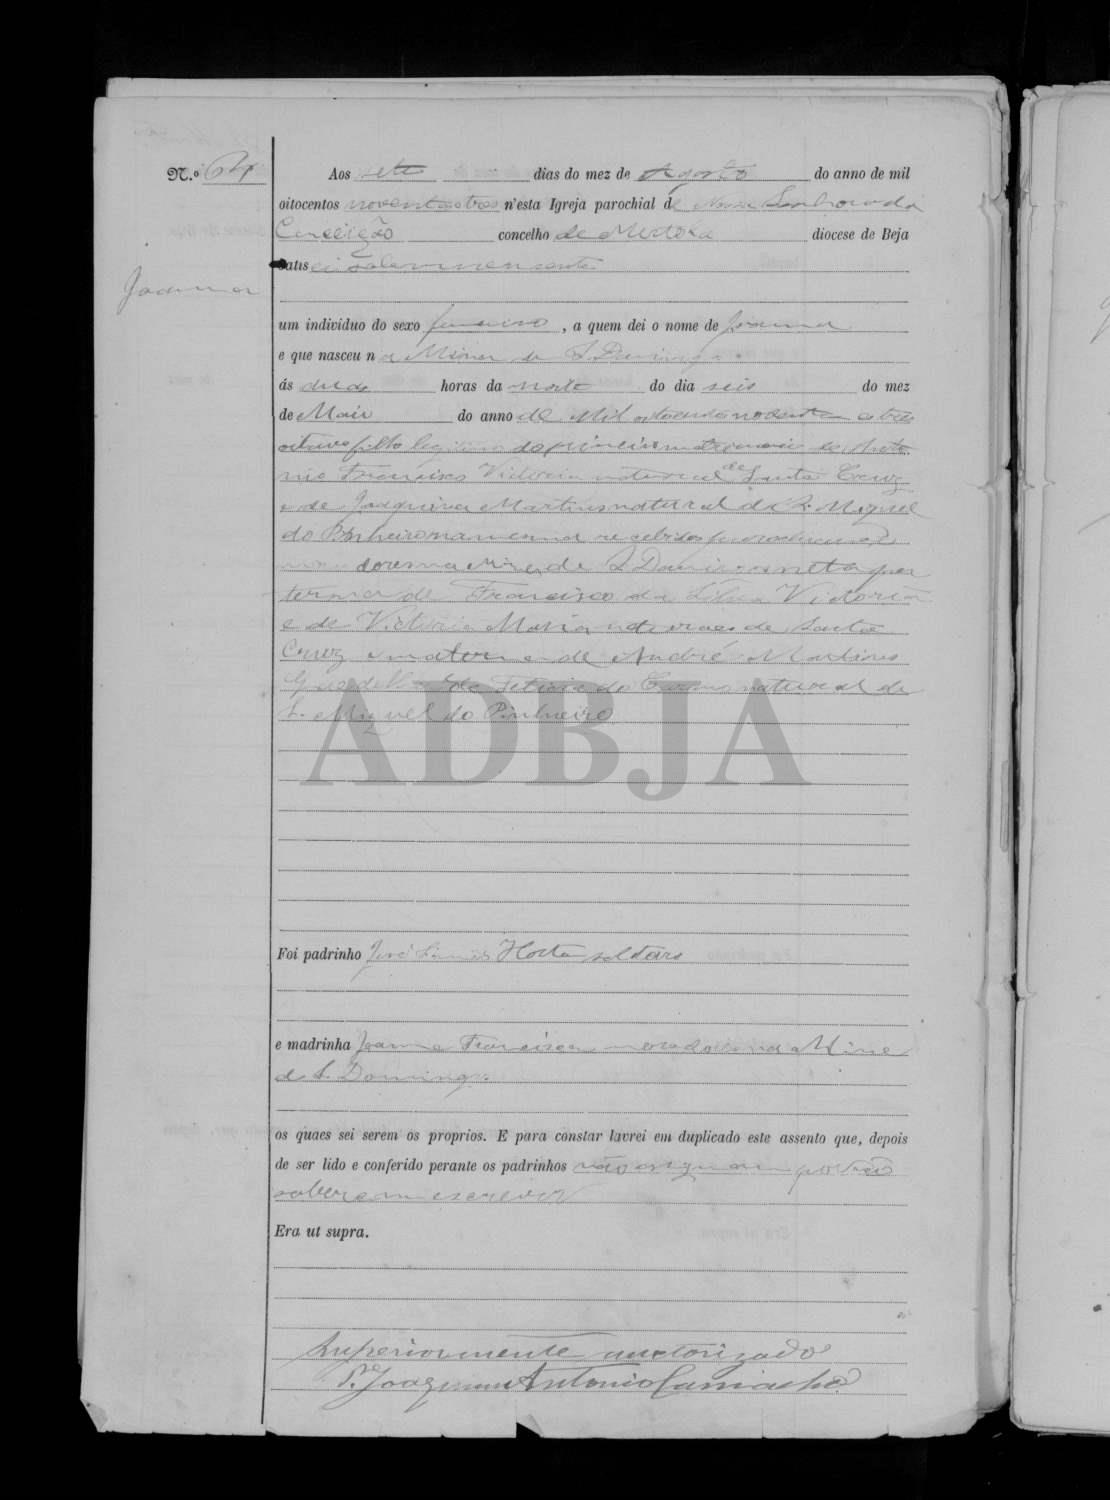 N.º 64
Aos sete dias do mez de Agosto do anno de mil
oitocentos noventa e tres n'esta Igreja parochial de Nossa Senhora da
Conceição concelho de Mertola diocese de Beja
batisei solemnemente
Joanna
um individuo do sexo femenino, a quem dei o nome de Joanna
e que nasceu na Mina de S. Domingos
ás duas horas da noite do dia seis do mez
de Maio do anno de Mil oitocentos noventa e tres
oitavo filho legitimo do primeiro matrimonio de Anto
nio Francisco Victoria natural de Santa Cruz
e de Joaquina Martins natural de S. Miguel
do Pinheiro na mesma recebidos parochianos
moradores na Mina de S. Domingos neta pa
terna de Francisco da Silva Victoria
e de Victoria Maria naturaes de Santa
Cruz e materna de André Martins
do Carmo natural de
S. Miguel do Pinheiro
ADBJA
Foi padrinho José Horta solteiro
e madrinha Joanna Francisca moradores na Mina
de S. Domingos
os quaes sei serem os proprios. E para constar lavrei em duplicado este assento que, depois
de ser lido e conferido perante os padrinhos não assignam por não
saberem escrever
Era ut supra.
Superiormente auctorizado
P.e Joaquim Antonio Camacho